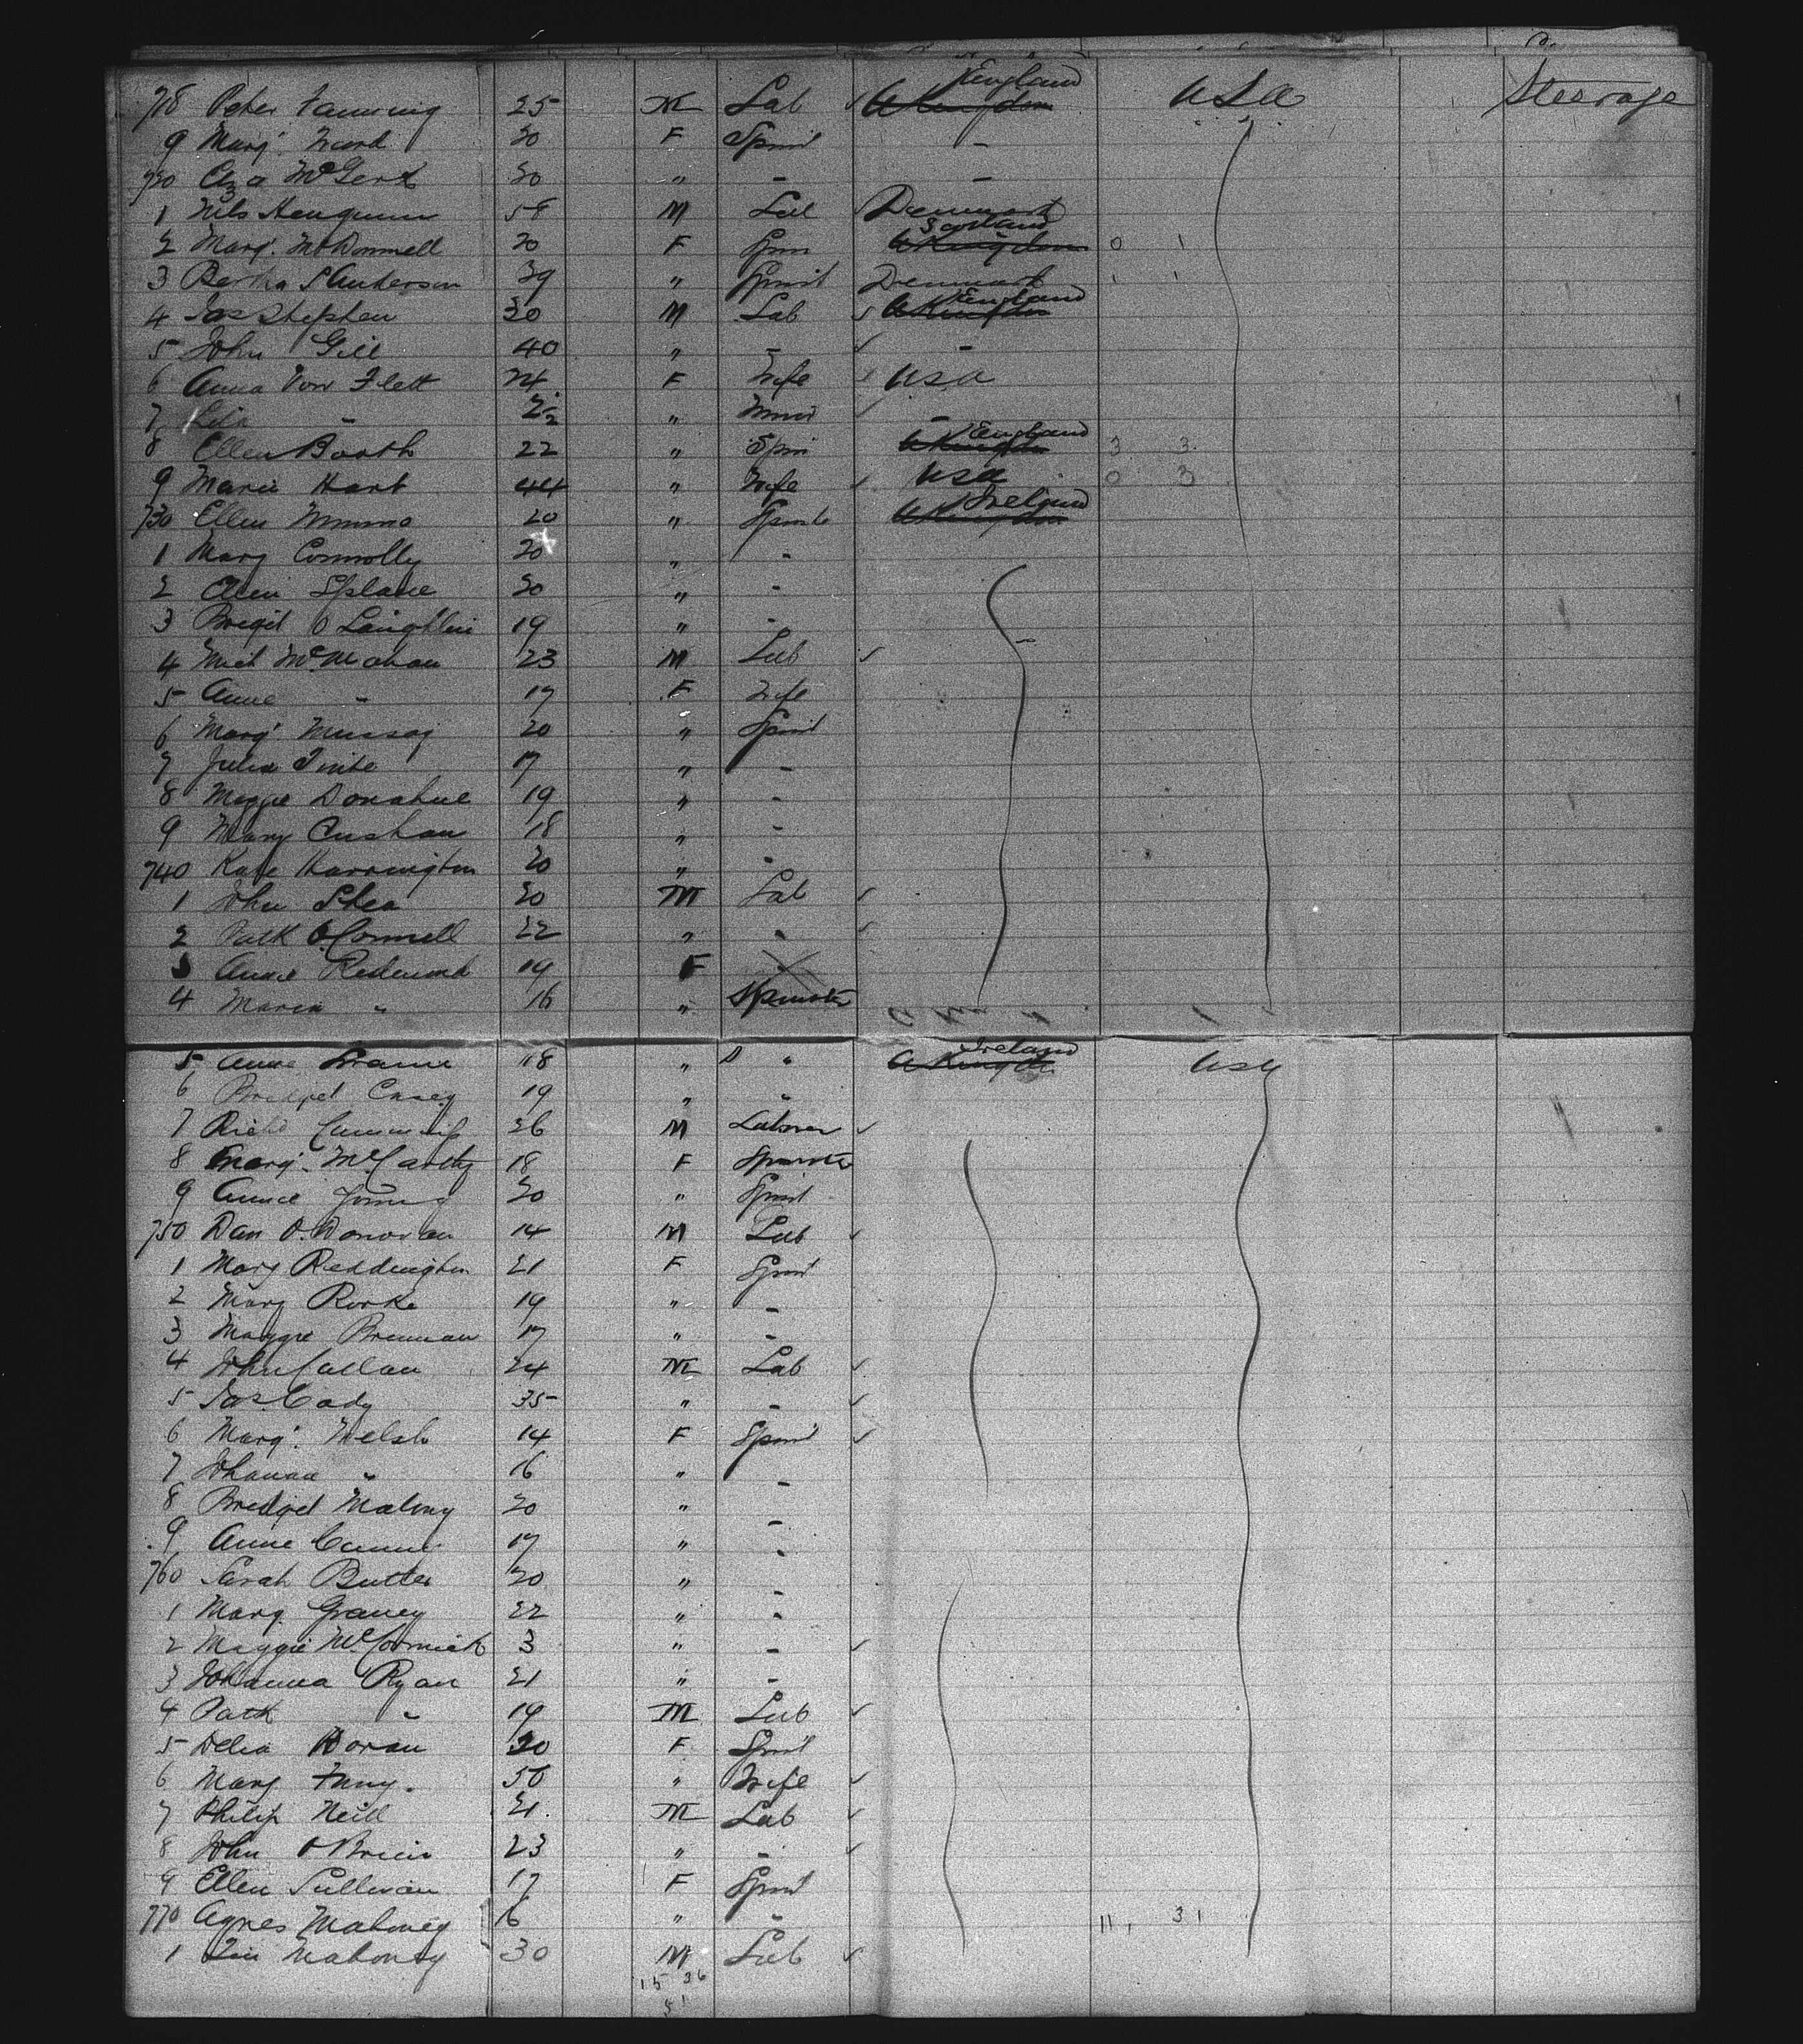 718 Peter Fanning 25 M Lab ✓ England U Kingdom USA Steerage
9 Marg. Ward 20 F Spinst -
720 McGert 20 " - -
1 Nils 58 M Lab Denmark
2 Marg. McDonnell 20 F Spin Scotland U Kingdom 0 1
3 Bertha S Anderson 39 " Spinst Denmark 1 1
4 Jas Stephen 30 M Lab ✓ England U Kingdom
5 John Gill 40 " - ✓ -
6 Anna Von Flett 24 F Wife ✓ USA
7 Lila " " ✓ -
8 Ellen Booth 22 " Spin England U Kingdom 3 3
9 Marie Hart 44 " Wife ✓ USA 0 3
730 Ellen 20 " Spinst Ireland U Kingdom
1 Mary Connolly 20 " -
2 Splane 20 " -
3 Bregit O Laughlin 19 " -
4 Mich McMahon 23 M Lab ✓
5 Anne " 19 F Wife
6 Marg. 20 " Spinst
7 Julia 17 " -
8 Maggie Donahue 19 " -
9 Mary Cushan 18 " -
740 Kate Harrington 20 " -
1 John Shea 20 M Lab ✓
2 Patk O'Connell 22 " - ✓
3 Annie Redmond 19 F
4 Maria " 16 " Spinster
5 Anne 18 " " Ireland U Kingdom USA
6 Bridget Casey 19 " "
7 Richd Cummins 26 M Laborer ✓
8 Marg. McCarthy 18 F Spinster
9 Annie Young 20 " Spinst
750 Dan O.Donovan 14 M Lab ✓
1 Mary Reddington 21 F Spinst
2 Mary Rorke 19 " -
3 Maggie Brennan 17 " -
4 John Callan 24 M Lab ✓
5 Jas. Cody 35 " - ✓
6 Marg. Welsh 14 F Spinst ✓
7 Johanna " 16 " -
8 Bridget Malony 20 " -
9 Anne 17 " -
760 Sarah Butler 20 " -
1 Marg. Graney 22 " -
2 Maggie McCormick 3 " - ✓
3 Johanna Ryan 21 " -
4 Patk " 19 M Lab ✓
5 Delia Horan 20 F Spinst
6 Mary 50 " Wife ✓
7 Philip Neill 21 M Lab ✓
8 John O Brien 23 " - ✓
9 Ellen Sullivan 17 F Spinst
770 Agnes Mahoney 16 " - 11 , 31
1 Mahoney 30 M Lab ✓
15 36
51